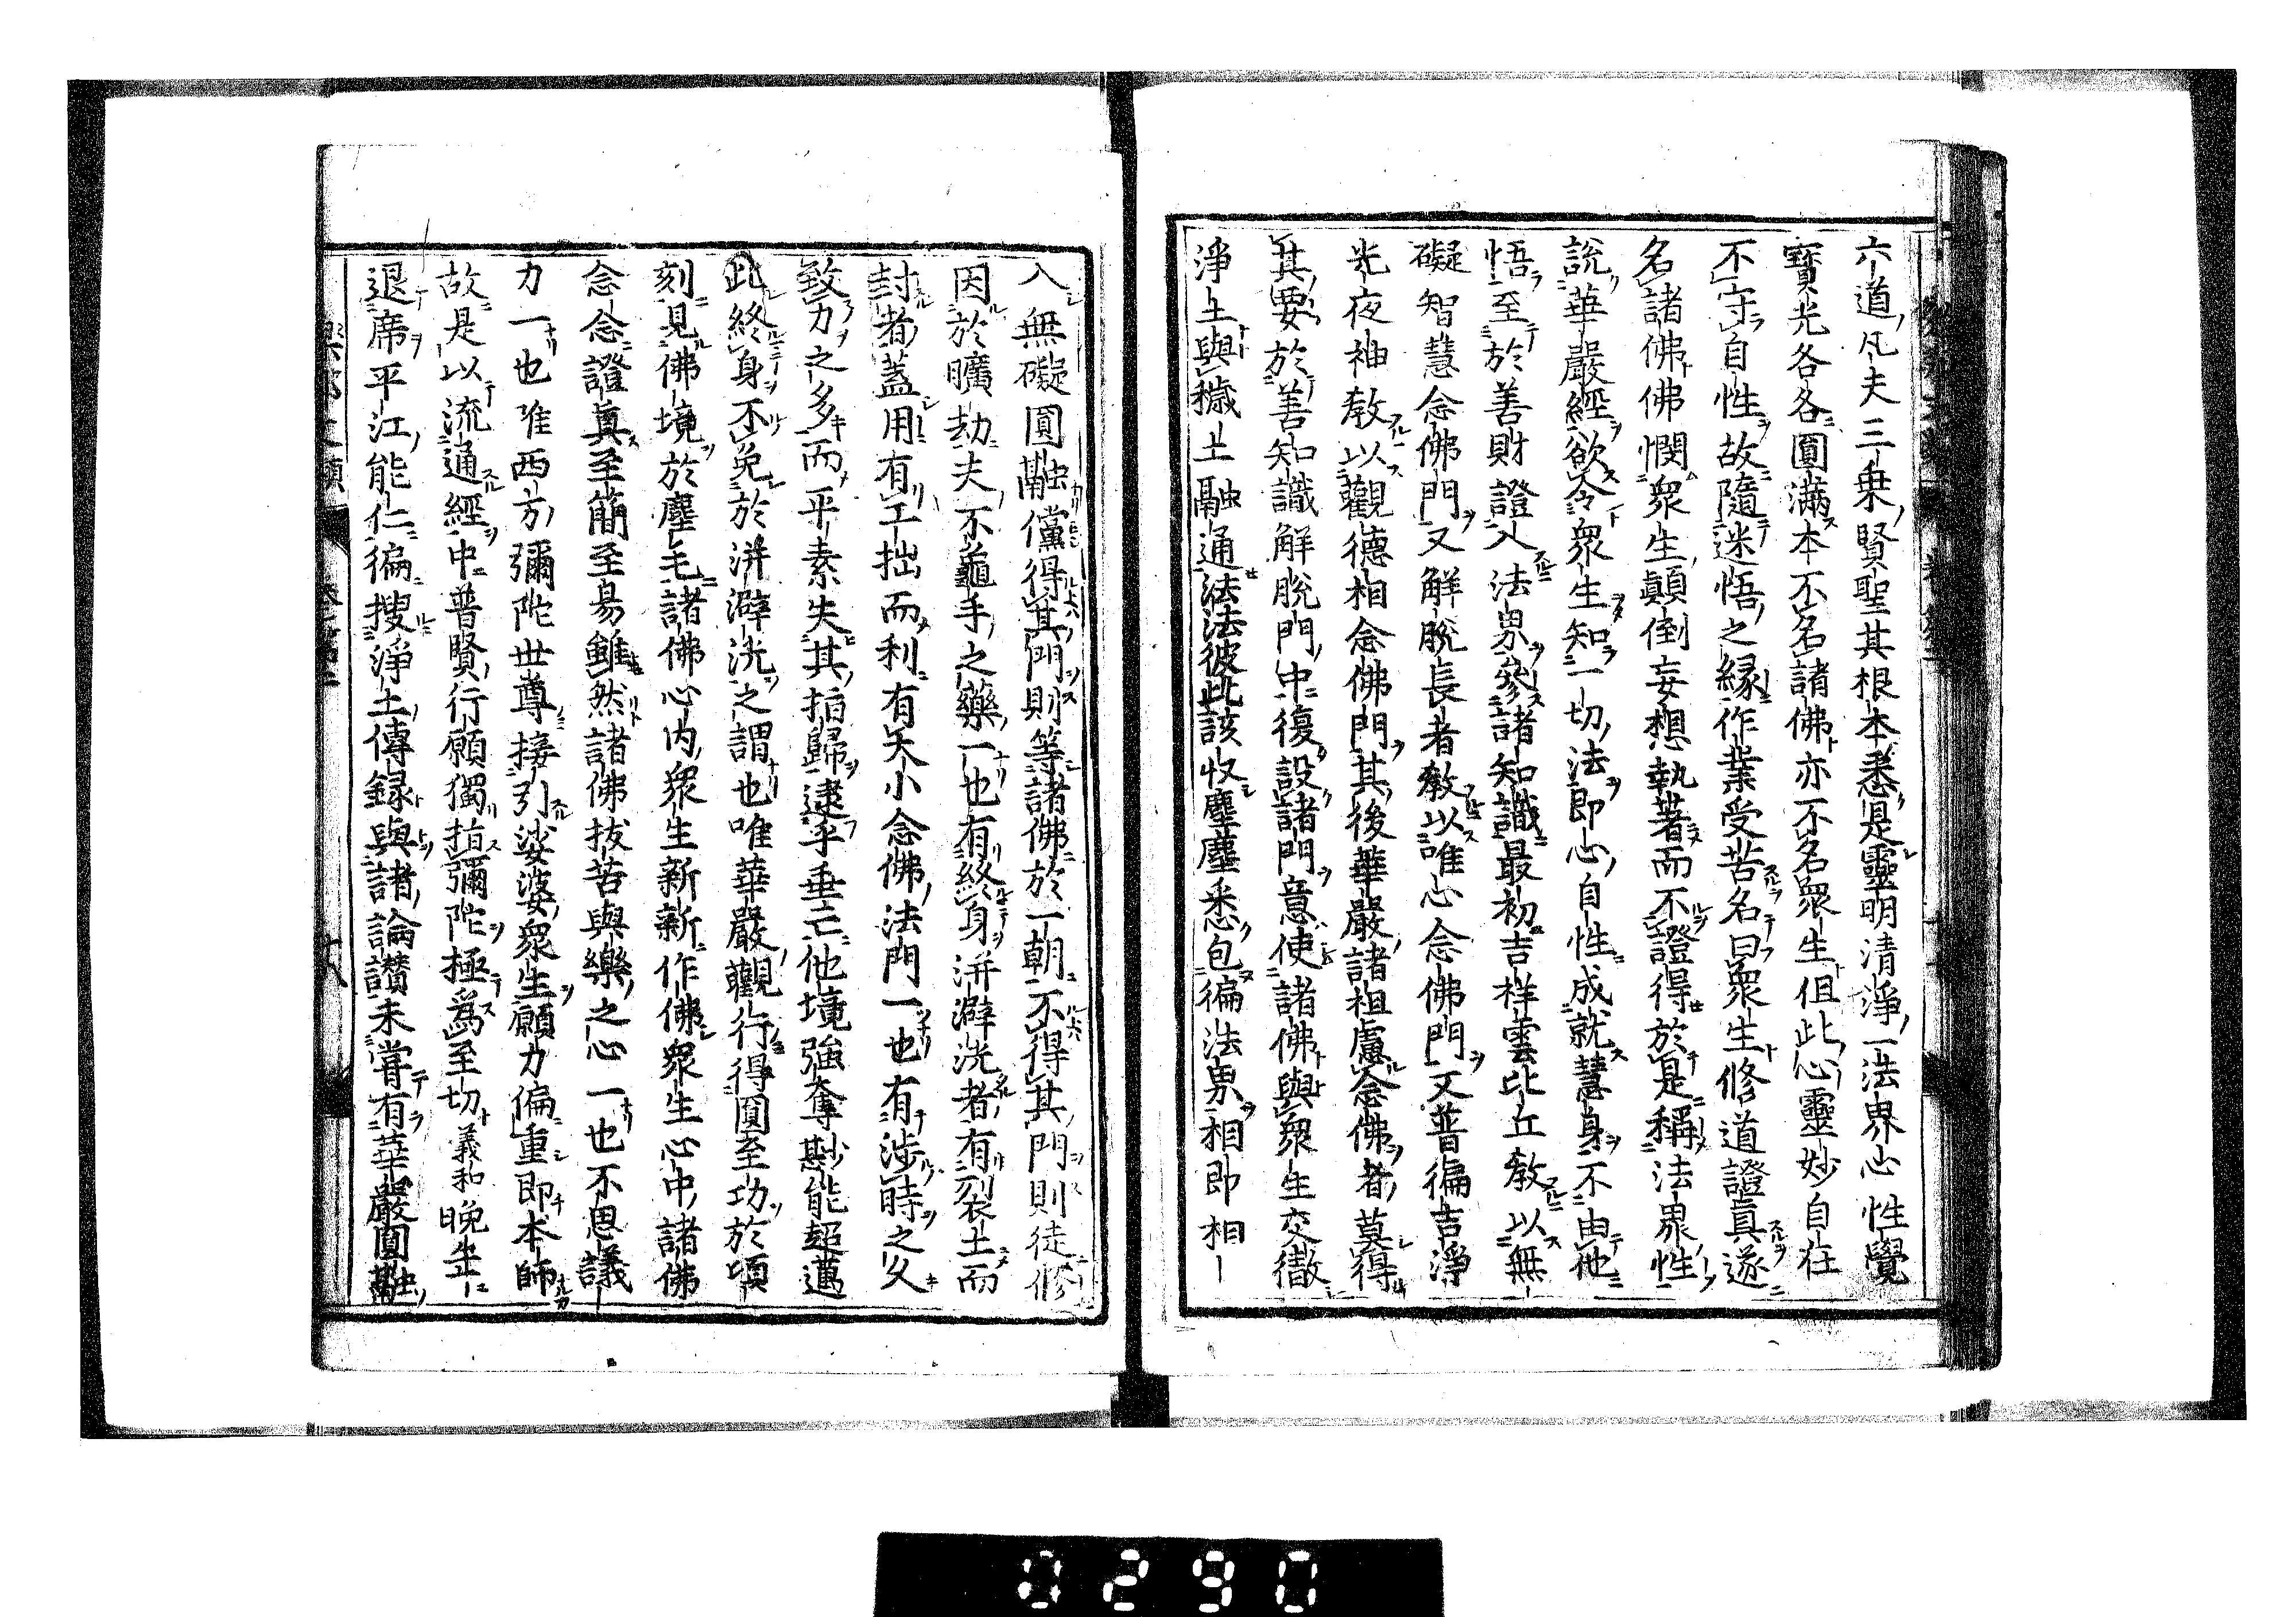 六道凡夫三乗賢聖其根本悉是靈明清淨一法界心性覺
寶光各各圓滿本不名諸佛亦不名衆生但此心靈妙自在
不守自性故隨迷悟之縁作業受苦名曰衆生修道證真遂
名諸佛佛憫衆生顛倒妄想執著而不證得於是稱法界性
説華嚴經欲令衆生知一切法即心自性成就慧身不由他
悟至於善財證入法界參諸知識最初吉祥雲比丘教以無
礙智慧念佛門又解脱長者教以唯心念佛門又普徧吉淨
光夜神教以觀德相念佛門其後華嚴諸祖慮念佛者莫得
其要於善知識解脱門中復設諸門意使諸佛與衆生交徹
淨土與穢土融通法法彼此該收塵塵悉包徧法界相即相
入無礙圓融儻得其門則等諸佛於一朝不得其門則徒修
因於曠劫夫不龜手之藥一也有終身洴澼洸者有裂土而
封者蓋用有工拙而利有大小念佛法門一也有渉時之久
致力之多而平素失其指歸逮乎垂亡他境強奪尠能超邁
此終身不免於洴澼洸之謂也唯華嚴觀行得圓至功於頃
刻見佛境於塵毛諸佛心内衆生新新作佛衆生心中諸佛
念念證真至簡至易雖然諸佛拔苦與樂之心一也不思議
力一也唯西方彌陀世尊接引娑婆衆生願力偏重即本師
故是以流通經中普賢行願獨指彌陀極爲至切義和晩年
退席平江能仁徧捜淨土傳録與諸論讃未嘗有華嚴圓融
樂邦文類 卷第二 十八
0290